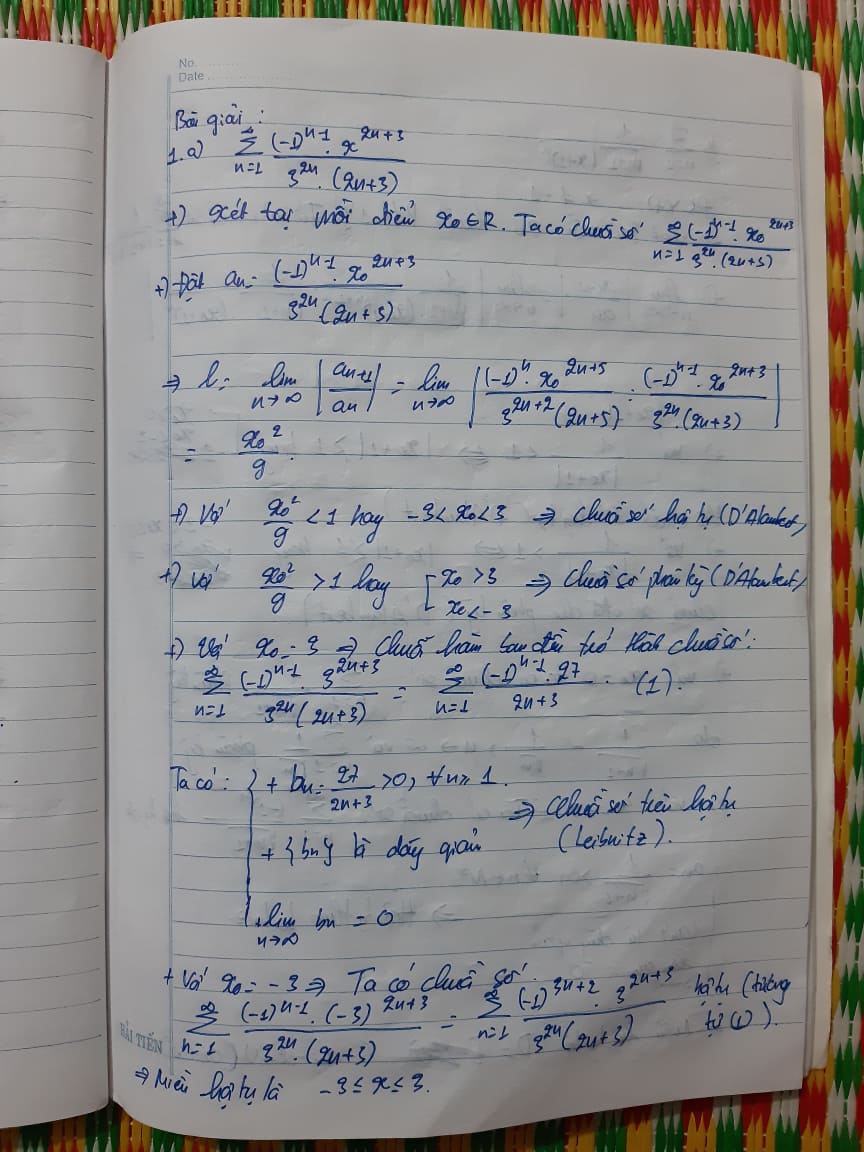 No. ........
Date ....................
Bài giải :
1.a) ∑_{n=1}^{∞} \frac{(-1)^{n-1} . x^{2n+3}}{3^{2n} . (2n+3)}
+) Xét tại mỗi điểm x₀ ∈ R. Ta có chuỗi số ∑_{n=1}^{∞} \frac{(-1)^{n-1} . x₀^{2n+3}}{3^{2n} . (2n+3)}
+) Đặt aₙ = \frac{(-1)^{n-1} . x₀^{2n+3}}{3^{2n} (2n+3)}
⇒ l = \lim_{n→∞} |\frac{a_{n+1}}{a_n}| = \lim_{n→∞} |\frac{(-1)^n . x₀^{2n+5}}{3^{2n+2} (2n+5)} : \frac{(-1)^{n-1} . x₀^{2n+3}}{3^{2n} . (2n+3)}|
= \frac{x₀^2}{9} .
+) Với \frac{x₀^2}{9} < 1 hay -3 < x₀ < 3 ⇒ Chuỗi số hội tụ (D'Alambert)
+) Với \frac{x₀^2}{9} > 1 hay [ x₀ > 3 ⇒ Chuỗi số phân kỳ (D'Alambert)
x₀ < -3
+) Với x₀ = 3 ⇒ Chuỗi hàm ban đầu trở thành chuỗi số :
∑_{n=1}^{∞} \frac{(-1)^{n-1} . 3^{2n+3}}{3^{2n} (2n+3)} = ∑_{n=1}^{∞} \frac{(-1)^{n-1} . 27}{2n+3} . (1).
Ta có : { + bₙ = \frac{27}{2n+3} > 0, ∀n ≥ 1.
⇒ Chuỗi số trên hội tụ
+ {bₙ} là dãy giảm (Leibnitz).
+ \lim_{n→∞} bₙ = 0
+ Với x₀ = -3 ⇒ Ta có chuỗi số
∑_{n=1}^{∞} \frac{(-1)^{n-1} . (-3)^{2n+3}}{3^{2n} . (2n+3)} = ∑_{n=1}^{∞} \frac{(-1)^{3n+2} . 3^{2n+3}}{3^{2n} (2n+3)} hội tụ (tương
tự (1)).
HẢI TIẾN
⇒ Miền hội tụ là -3 ≤ x ≤ 3.